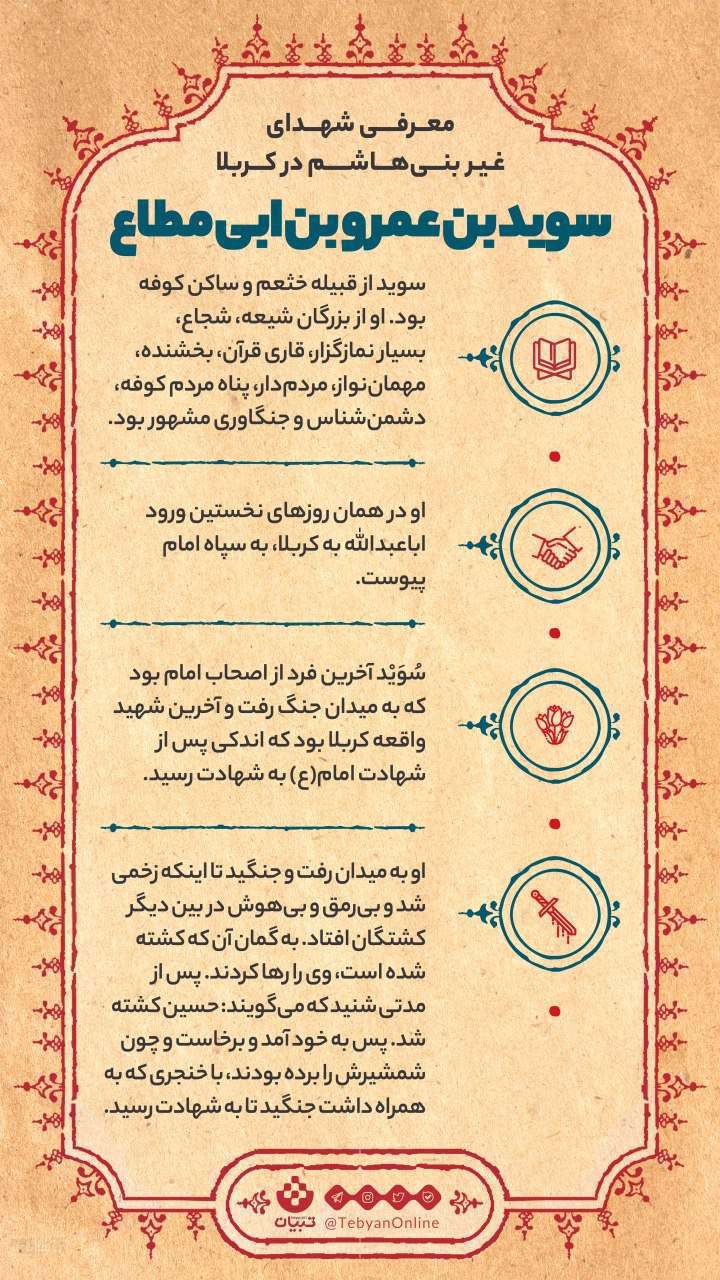 معرفی شهدای
غیر بنی‌هاشم در کربلا
سوید بن عمرو بن ابی مطاع
سوید از قبیله خثعم و ساکن کوفه
بود. او از بزرگان شیعه، شجاع،
بسیار نمازگزار، قاری قرآن، بخشنده،
مهمان‌نواز، مردم‌دار، پناه مردم کوفه،
دشمن‌شناس و جنگاوری مشهور بود.
او در همان روزهای نخستین ورود
اباعبدالله به کربلا، به سپاه امام
پیوست.
سُوَیْد آخرین فرد از اصحاب امام بود
که به میدان جنگ رفت و آخرین شهید
واقعه کربلا بود که اندکی پس از
شهادت امام(ع) به شهادت رسید.
او به میدان رفت و جنگید تا اینکه زخمی
شد و بی‌رمق و بی‌هوش در بین دیگر
کشتگان افتاد. به گمان آن که کشته
شده است، وی را رها کردند. پس از
مدتی شنید که می‌گویند: حسین کشته
شد. پس به خود آمد و برخاست و چون
شمشیرش را برده بودند، با خنجری که به
همراه داشت جنگید تا به شهادت رسید.
تبیان @TebyanOnline